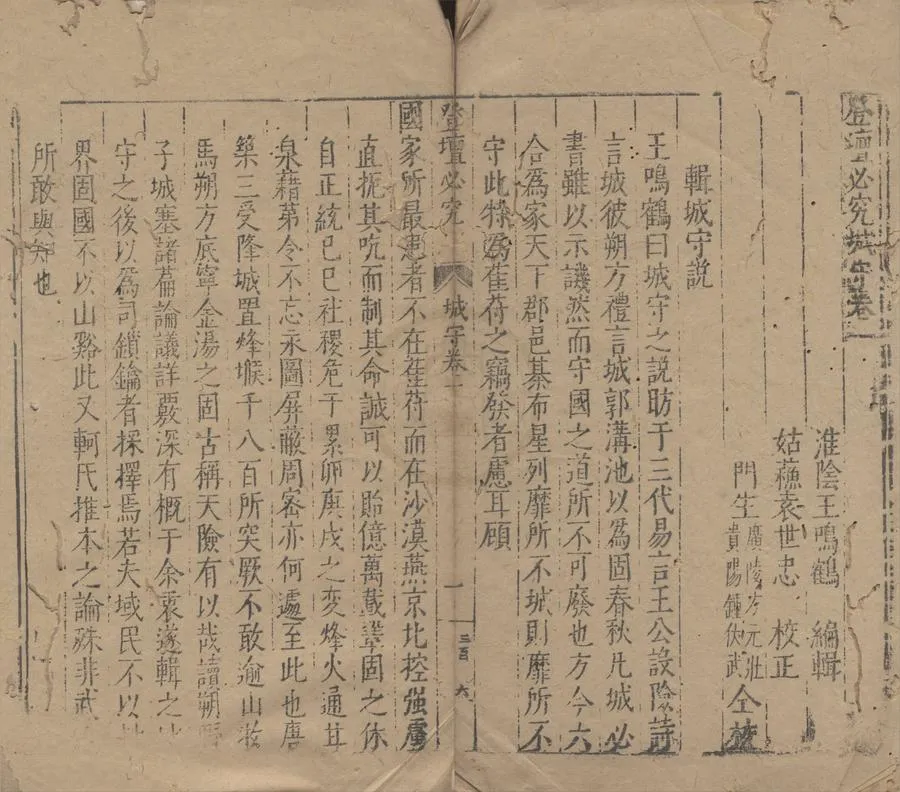 登壇必究城守卷一
淮陰王鳴鶴 編輯
姑蘇袁世忠 校正
門生廣陵方元壯
貴陽鍾伏武 仝校
輯城守説
王鳴鶴曰城守之説昉于三代易言王公設險詩
言城彼朔方禮言城郭溝池以為固春秋凡城必
書雖以示譏然而守國之道所不可廢也方今六
合為家天下郡邑棊布星列靡所不城則靡所不
守此特為萑苻之竊發者慮耳顧
登壇必究 城守卷一 一 三百 六
國家所最患者不在萑苻而在沙漠燕京北控強虜
直扼其吭而制其命誠可以貽億萬載鞏固之休
自正統己巳社稷危于累卵庚戌之変烽火通甘
泉藉第令不忘永圖屏蔽周密亦何遽至此也唐
築三受降城置烽堠千八百所突厥不敢逾山牧
馬朔方底寧金湯之固古稱天險有以哉讀朔
子城塞諸篇論議詳覈深有概于余衷遂輯之
守之後以為司鎖鑰者採擇焉若夫域民不以
界固國不以山谿此又軻氏推本之論殊非武
所敢與知也